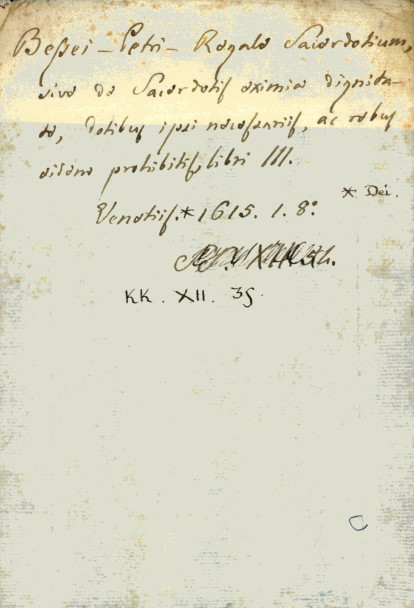 Bessei - Petri - Regale Sacerdotium,
sive de Sacerdotis eximia dignita-
te, dotibus ipsi necessariis, ac rebus
eidem prohibitis, libri III.
* Dei.
Venetiis.* 1615. 1. 8º.
KK. XII. 35.
C